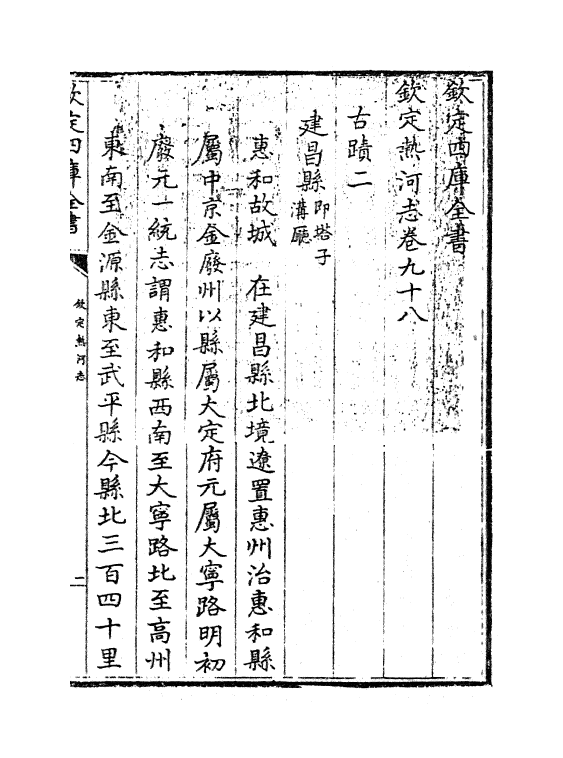 欽定四庫全書
欽定熱河志卷九十八
古蹟二
建昌縣即塔子溝廳
惠和故城　在建昌縣北境遼置惠州治惠和縣
屬中京金廢州以縣屬大定府元屬大寧路明初
廢元一統志謂惠和縣西南至大寧路北至高州
東南至金源縣東至武平縣今縣北三百四十里
欽定四庫全書
欽定熱河志
二